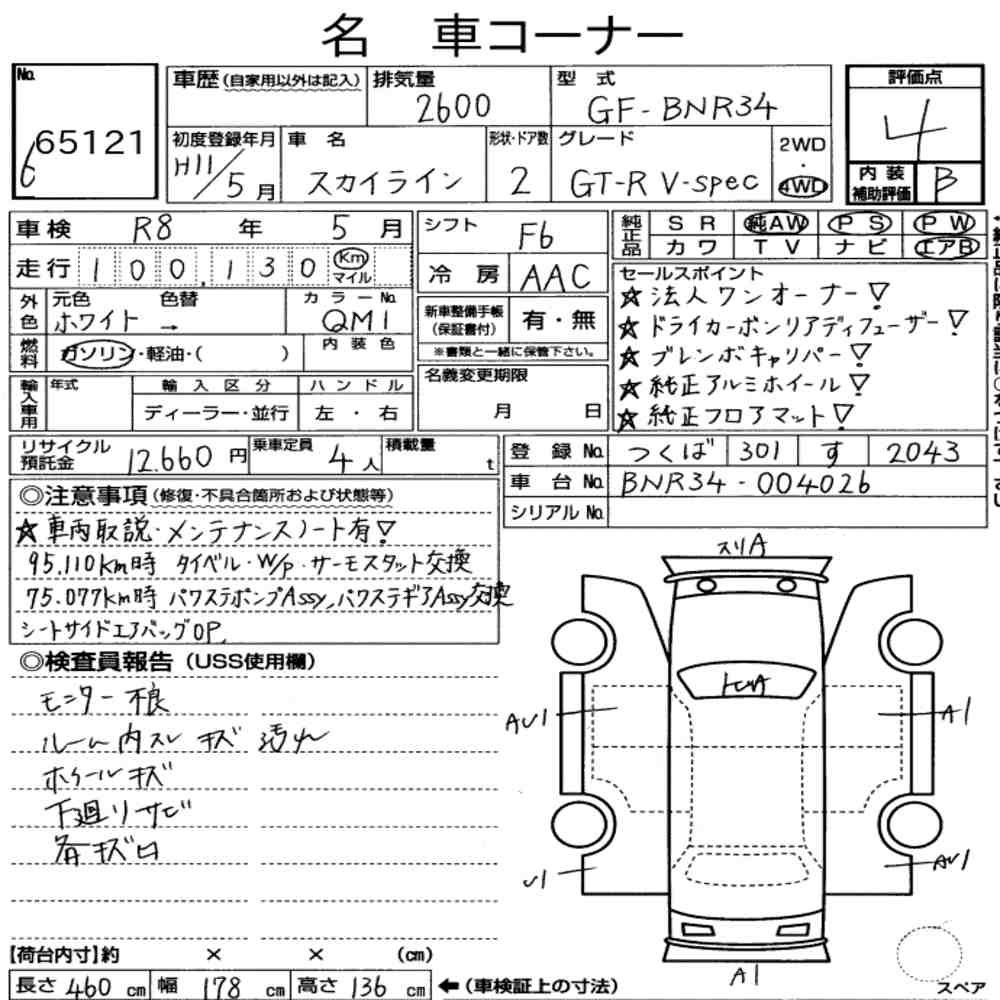 名 車コーナー
No. 65121 6
車歴(自家用以外は記入) 排気量 2600 型式 GF-BNR34
初度登録年月 H11/5月 車名 スカイライン 形状・ドア数 2 グレード GT-R V-spec 2WD・4WD
評価点 4
内装補助評価 B
車検 R8年 5月
走行 100,130 Km マイル
外色 元色 ホワイト → 色替 カラーNo. QM1
燃料 ガソリン・軽油・( ) 内装色
輸入車用 年式 輸入区分 ディーラー・並行 ハンドル 左・右
シフト F6
冷房 AAC
新車整備手帳(保証書付) 有・無
※書類と一緒に保管下さい。
名義変更期限 月 日
純正品 SR 純AW PS PW
カワ TV ナビ エアB
セールスポイント
☆法人ワンオーナー!
☆ドライカーボンリアディフューザー!
☆ブレンボキャリパー!
☆純正アルミホイール!
☆純正フロアマット!
リサイクル預託金 12.660円 乗車定員 4人 積載量 t
登録No. つくば 301 す 2043
車台No. BNR34-004026
シリアルNo.
◎注意事項(修復・不具合箇所および状態等)
☆車両取説・メンテナンスノート有!
95.110Km時 タイベル・W/p・サーモスタット交換
75.077km時 パワステポンプAssy,パワステギアAssy交換
シートサイドエアバッグOP,
◎検査員報告(USS使用欄)
モニター不良
ルーム内スレ キズ 汚れ
ホイールキズ
下廻りサビ
各キズ凹
スリA
トビA
AU1
A1
U1
AU1
A1
【荷台内寸】約 × × (cm)
長さ 460 cm 幅 178 cm 高さ 136 cm ←(車検証上の寸法)
スペア